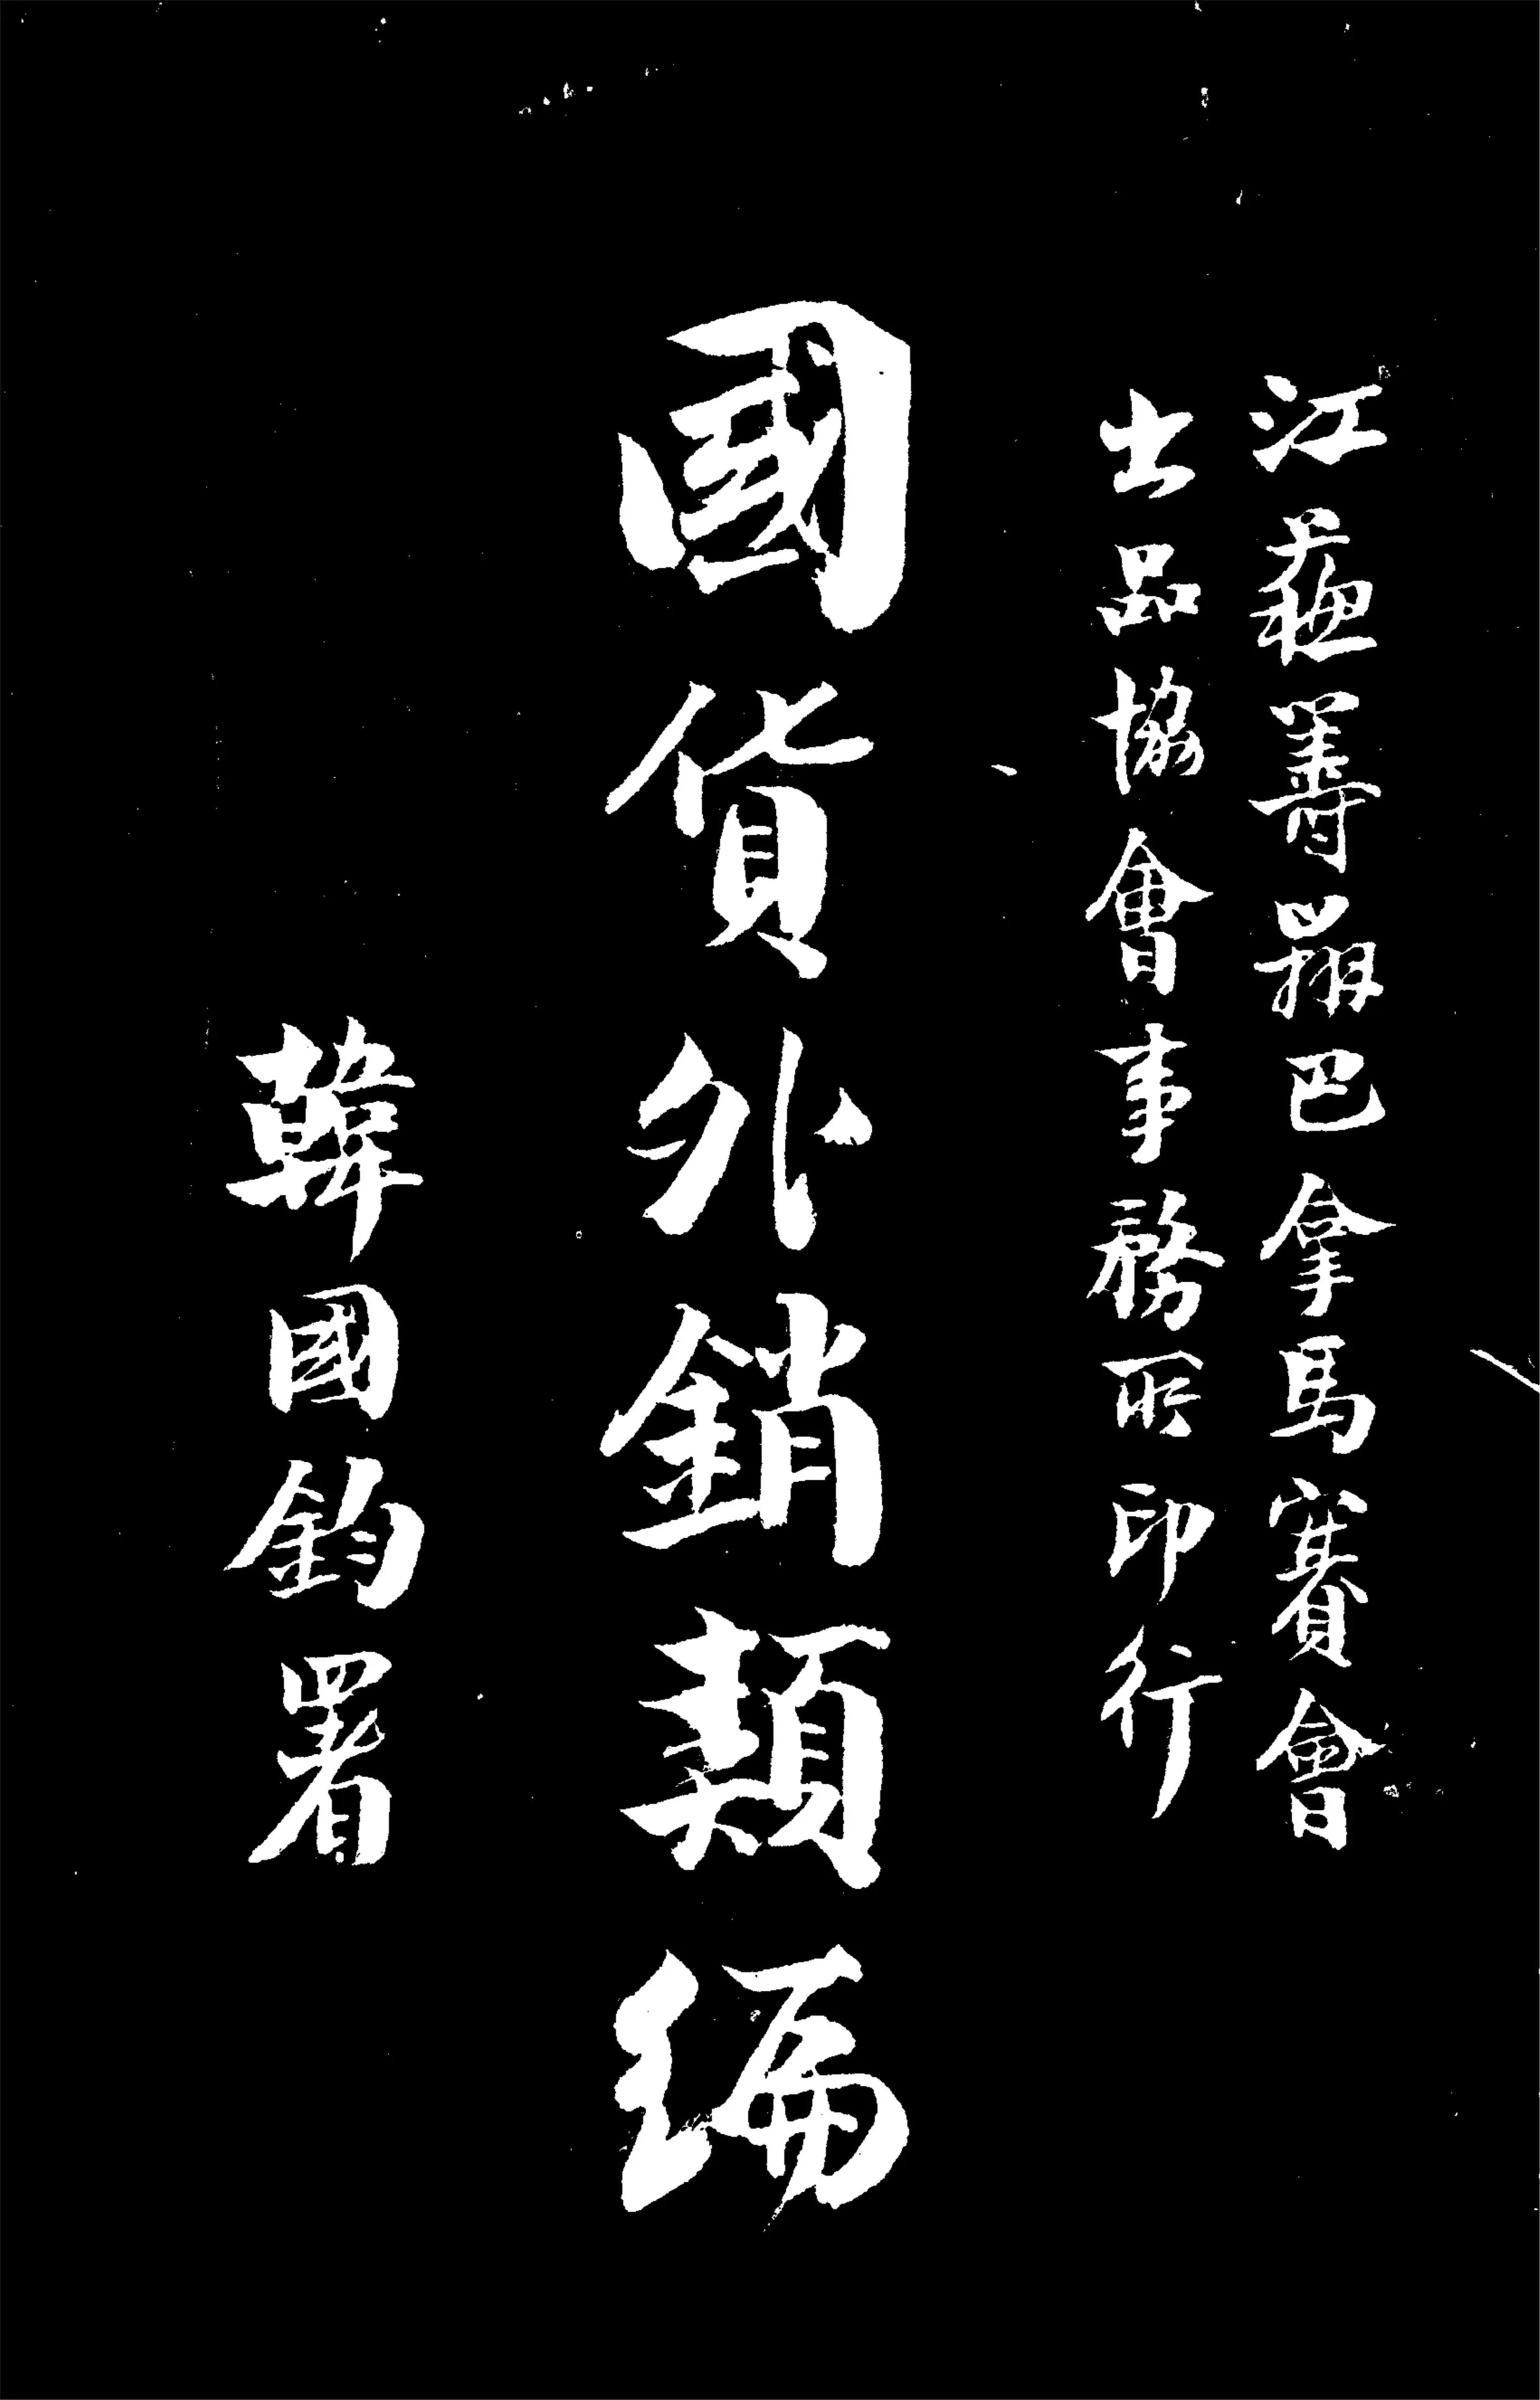 江蘇籌辦巴拿馬賽會
出品協會事務所印行
國貨外銷類編
韓國鈞署